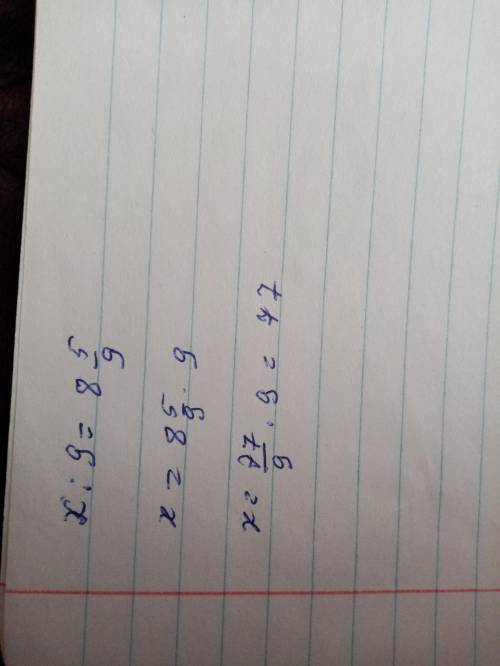 x : 9 = 8 5/9
x = 8 5/9 · 9
x = 77/9 · 9 = 77